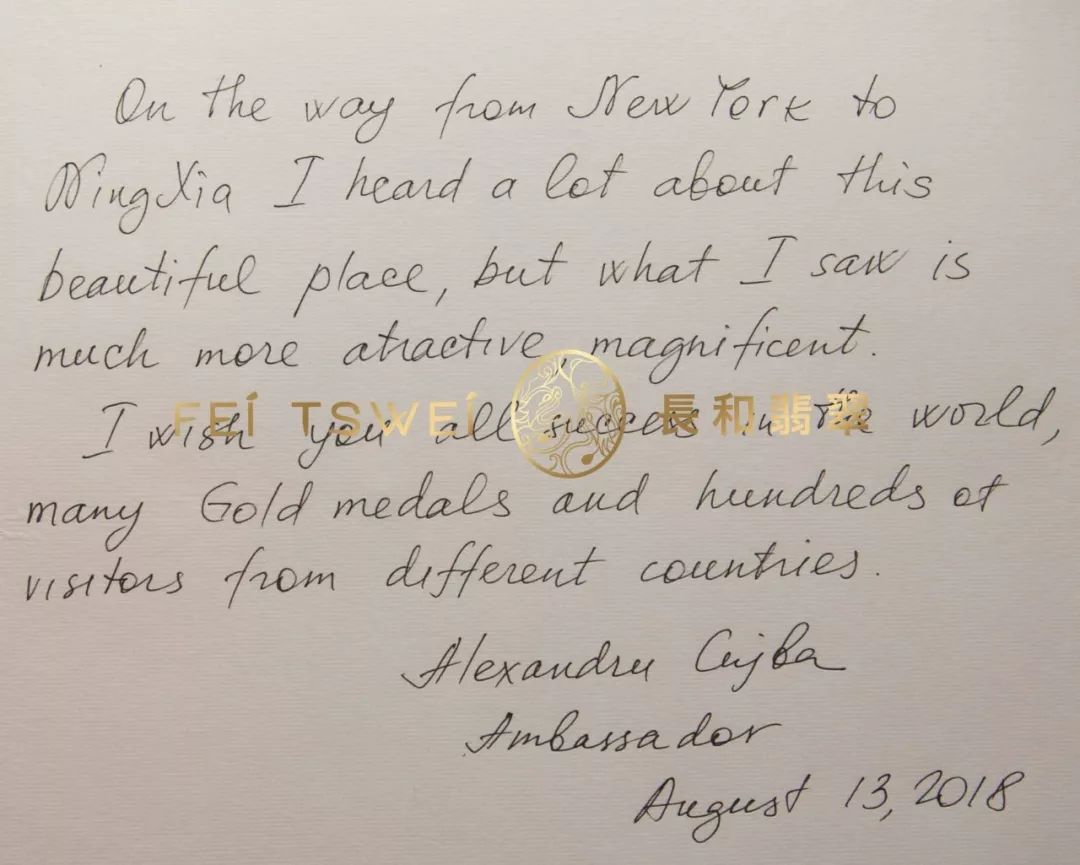 On the way from New York to
NingXia I heard a lot about this
beautiful place, but what I saw is
much more atractive, magnificent.
FEÍ TSWEÍ 長和翡翠
I wish you all success in the world,
many Gold medals and hundreds of
visitors from different countries.
Alexandru Cujba
Ambassador
August 13, 2018